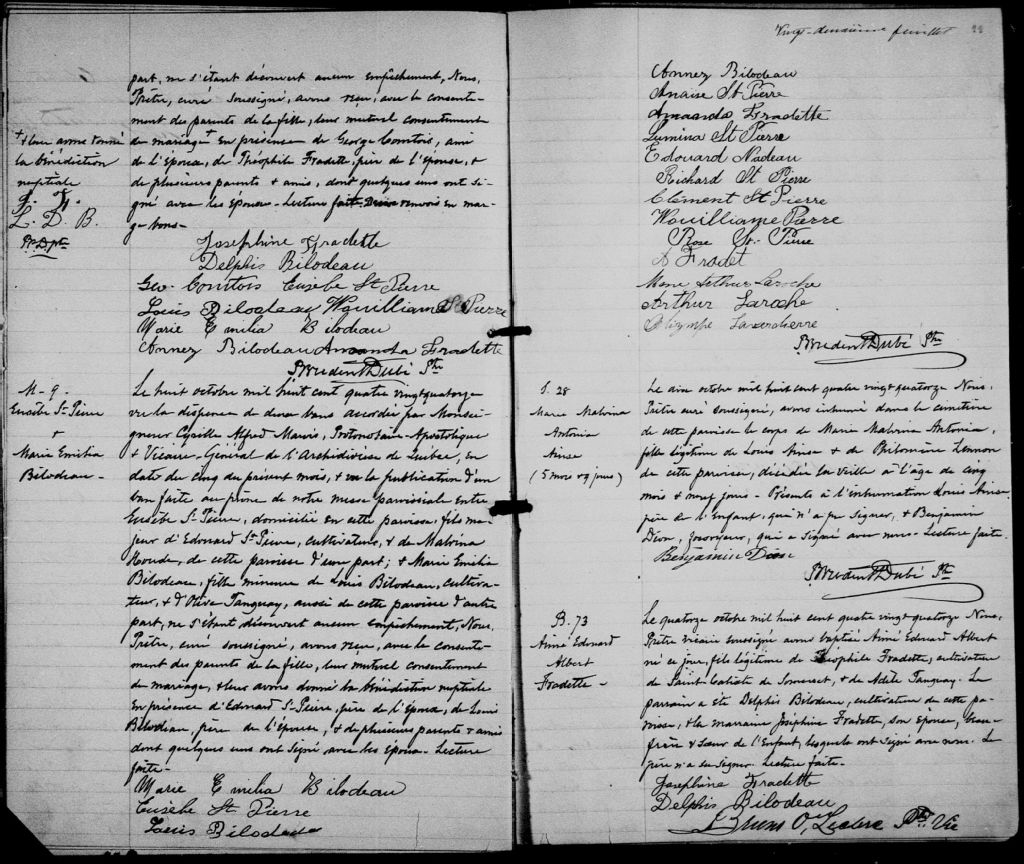 part, ne s'étant découvert aucun empêchement, Nous,
Prêtre, curé soussigné, avons reçu, avec le consente-
ment des parents de la fille, leur mutuel consentement
de mariage + en présence de George Comtois, ami
de l'époux, de Théophile Fradette, père de l'épouse, &
de plusieurs parents & amis, dont quelques uns ont si-
gné avec les époux. Lecture faite. renvoi en mar-
ge bons.
+ & leur avons donné
la bénédiction
nuptiale
L. D. B.
Ptr. D. ptr.
Joséphine Fradette
Delphis Bilodeau
Geo. Comtois Eusèbe St Pierre
Louis Bilodeau Wouilliame St Pierre
Marie Emilia Bilodeau
Annez Bilodeau Amanda Fradette
Prudent Dubé Ptr
M - 9.
Eusèbe St. Pierre
+
Marie Emilia
Bilodeau -
Le huit octobre mil huit cent quatre vingt quatorze
vu la dispense de deux bans accordée par Monsei-
gneur Cyrille Alfred Marois, Protonotaire-Apostolique
& Vicaire-Général de l'Archidiocèse de Québec, en
date du cinq du présent mois, & vu la publication d'un
ban faite au prône de notre messe paroissiale entre
Eusèbe St-Pierre, domicilié en cette paroisse, fils ma-
jeur d'Edouard St-Pierre, cultivateur, & de Malvina
Houde, de cette paroisse d'une part; & Marie Emilia
Bilodeau, fille mineure de Louis Bilodeau, cultiva-
teur, & d'Olive Tanguay, aussi de cette paroisse d'autre
part, ne s'étant découvert aucun empêchement, Nous,
Prêtre, curé soussigné, avons reçu, avec le consente-
ment des parents de la fille, leur mutuel consentement
de mariage, & leur avons donné la bénédiction nuptiale
en présence d'Edouard St-Pierre, père de l'époux, de Louis
Bilodeau, père de l'épouse, & de plusieurs parents & amis
dont quelques uns ont signé avec les époux. Lecture
faite.
Marie Emilia Bilodeau
Eusèbe St Pierre
Louis Bilodeau
Vingt-deuxième feuillet 22
Annez Bilodeau
Anaise St Pierre
Amaanda Fradette
Lumina St Pierre
Edouard Nadeau
Richard St Pierre
Clément St Pierre
Wouilliame Pierre
Rose St. Pierre
A Fradet
Mme Arthur Laroche
Arthur Laroche
Olympe
Prudent Dubé Ptr
S. 28
Marie Malvina
Antonia
Ainse
(5 mois & 9 jours)
Le dix octobre mil huit cent quatre vingt quatorze Nous,
Prêtre curé soussigné, avons inhumé dans le cimetière
de cette paroisse le corps de Marie Malvina Antonia,
fille légitime de Louis Ainse & de Philomène
de cette paroisse, décédée la veille à l'âge de cinq
mois & neuf jours - Présents à l'inhumation Louis Ainse
père de l'Enfant, qui n'a pu signer, & Benjamin
Dion, fossoyeur, qui a signé avec nous. Lecture faite.
Benjamin Dion
Prudent Dubé Ptr
B. 73
Aimé Edouard
Albert
Fradette -
Le quatorze octobre mil huit cent quatre vingt quatorze Nous,
Prêtre vicaire soussigné avons baptisé Aimé Edouard Albert
né ce jour, fils légitime de Théophile Fradette, cultivateur
de Saint-Calixte de Somerset, & de Adèle Tanguay. Le
parrain a été Delphis Bilodeau, cultivateur de cette pa-
roisse, & la marraine Joséphine Fradette, son épouse, beau-
frère & sœur de l'Enfant, lesquels ont signé avec nous. Le
père n'a su signer. Lecture faite.
Josephine Fradette
Delphis Bilodeau
O. Leclerc Ptr Vic